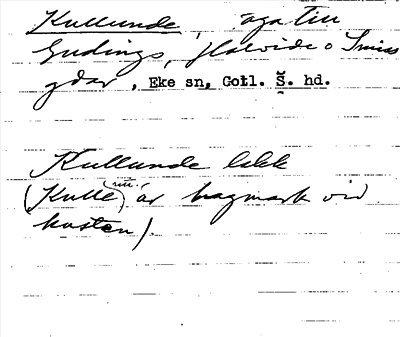 Kullunde, äga till
Gudings, Halvide o Smiss
gdar, Eke sn, Gotl. S. hd.
Kullunde
(Kulle är hagmark vid
kusten).